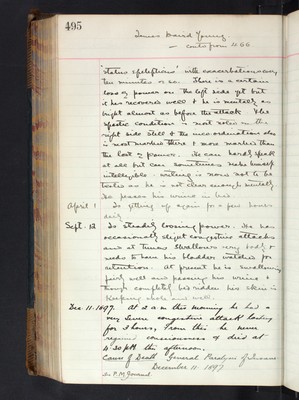 495
James Baird Young
— contd from 460
"status epilepticus" with exacerbations every
ten minutes or so. There is a certain
loss of power on the left side yet but
it has recovered well & he is mentally as
bright almost as before the attack. The
spastic condition is most noted in the
right side still & the incoordination also
is most marked there & more marked than
the loss of power. He can hardly speak
at all but can sometimes make himself
intelligible. writing is now not to be
tested as he is not clear enough mentally
He passes his urine in bed
April 1 Is getting up again for a few hours
daily
Sept. 12 Is steadily losing power. He has
occasionally slight congestive attacks
and at times swallows very badly &
needs to have his bladder watched for
retention. At present he is swallowing
fairly well and passing his urine
though completely bed ridden his skin is
keeping whole and well.
Dec. 11. 1897. At 2 a.m this morning he had a
very severe congestive attack lasting
for 3 hours, From this he never
regained consciousness & died at
4.30 P.M. this afternoon.
Cause of Death General Paralysis of Insane
December 11. 1897
No P.M.